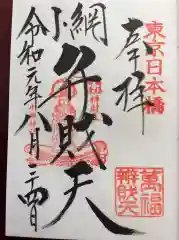 奉拝
東京日本橋
小網
弁財天
令和元年八月二四日
萬福
辨財天